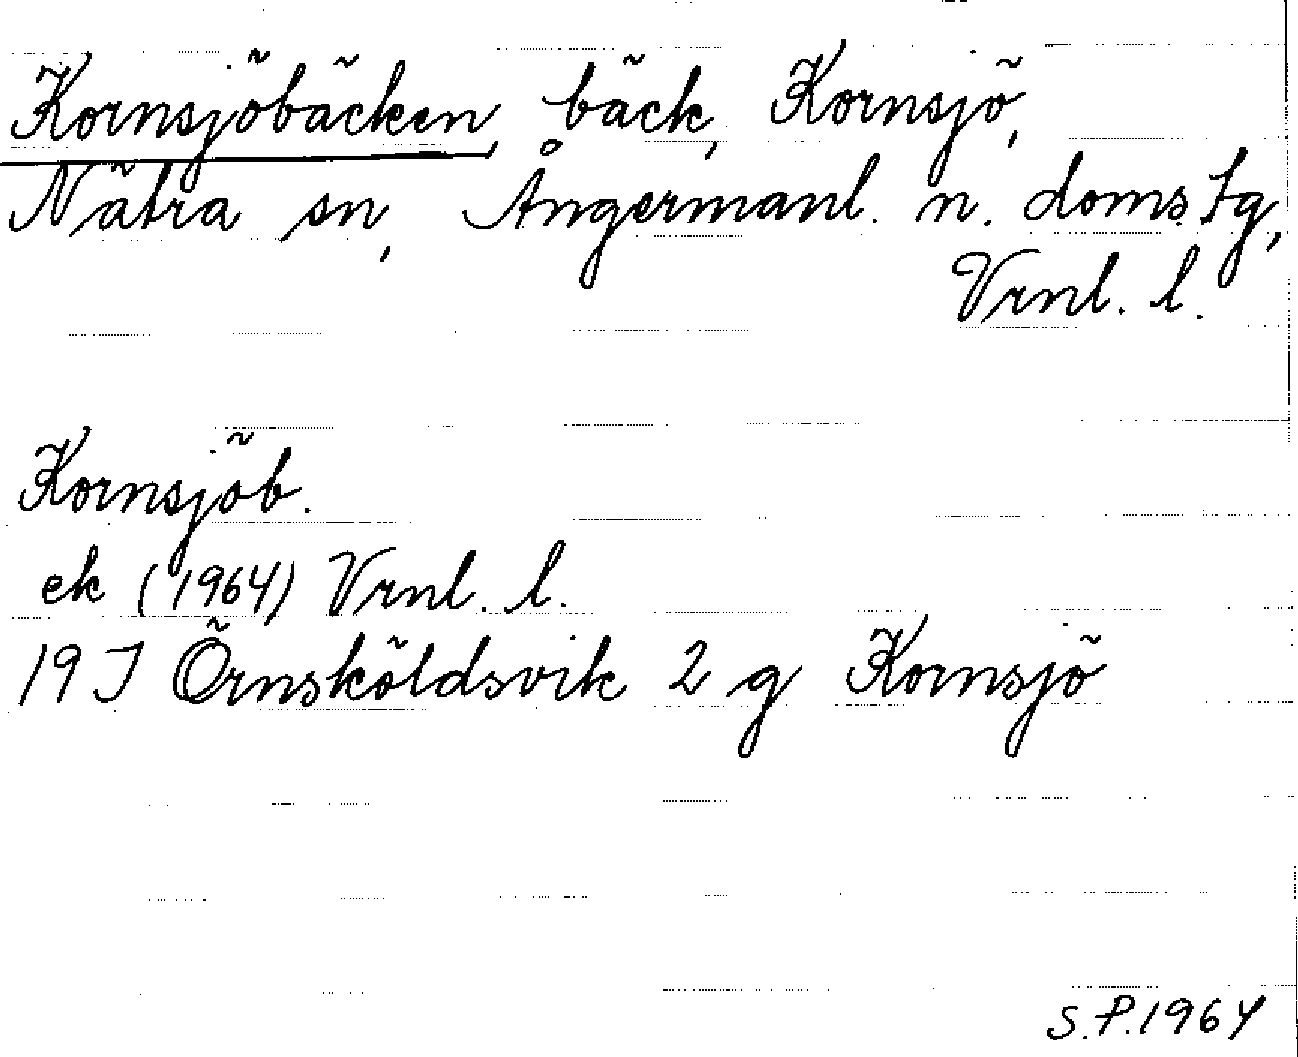 Kornsjöbäcken, bäck, Kornsjö,
Nätra sn, Ångermanl. n. doms.tg,
Vrnl. l.
Kornsjöb.
ek (1964) Vrnl. l.
19 J Örnsköldsvik 2 g Kornsjö
S.P.1964